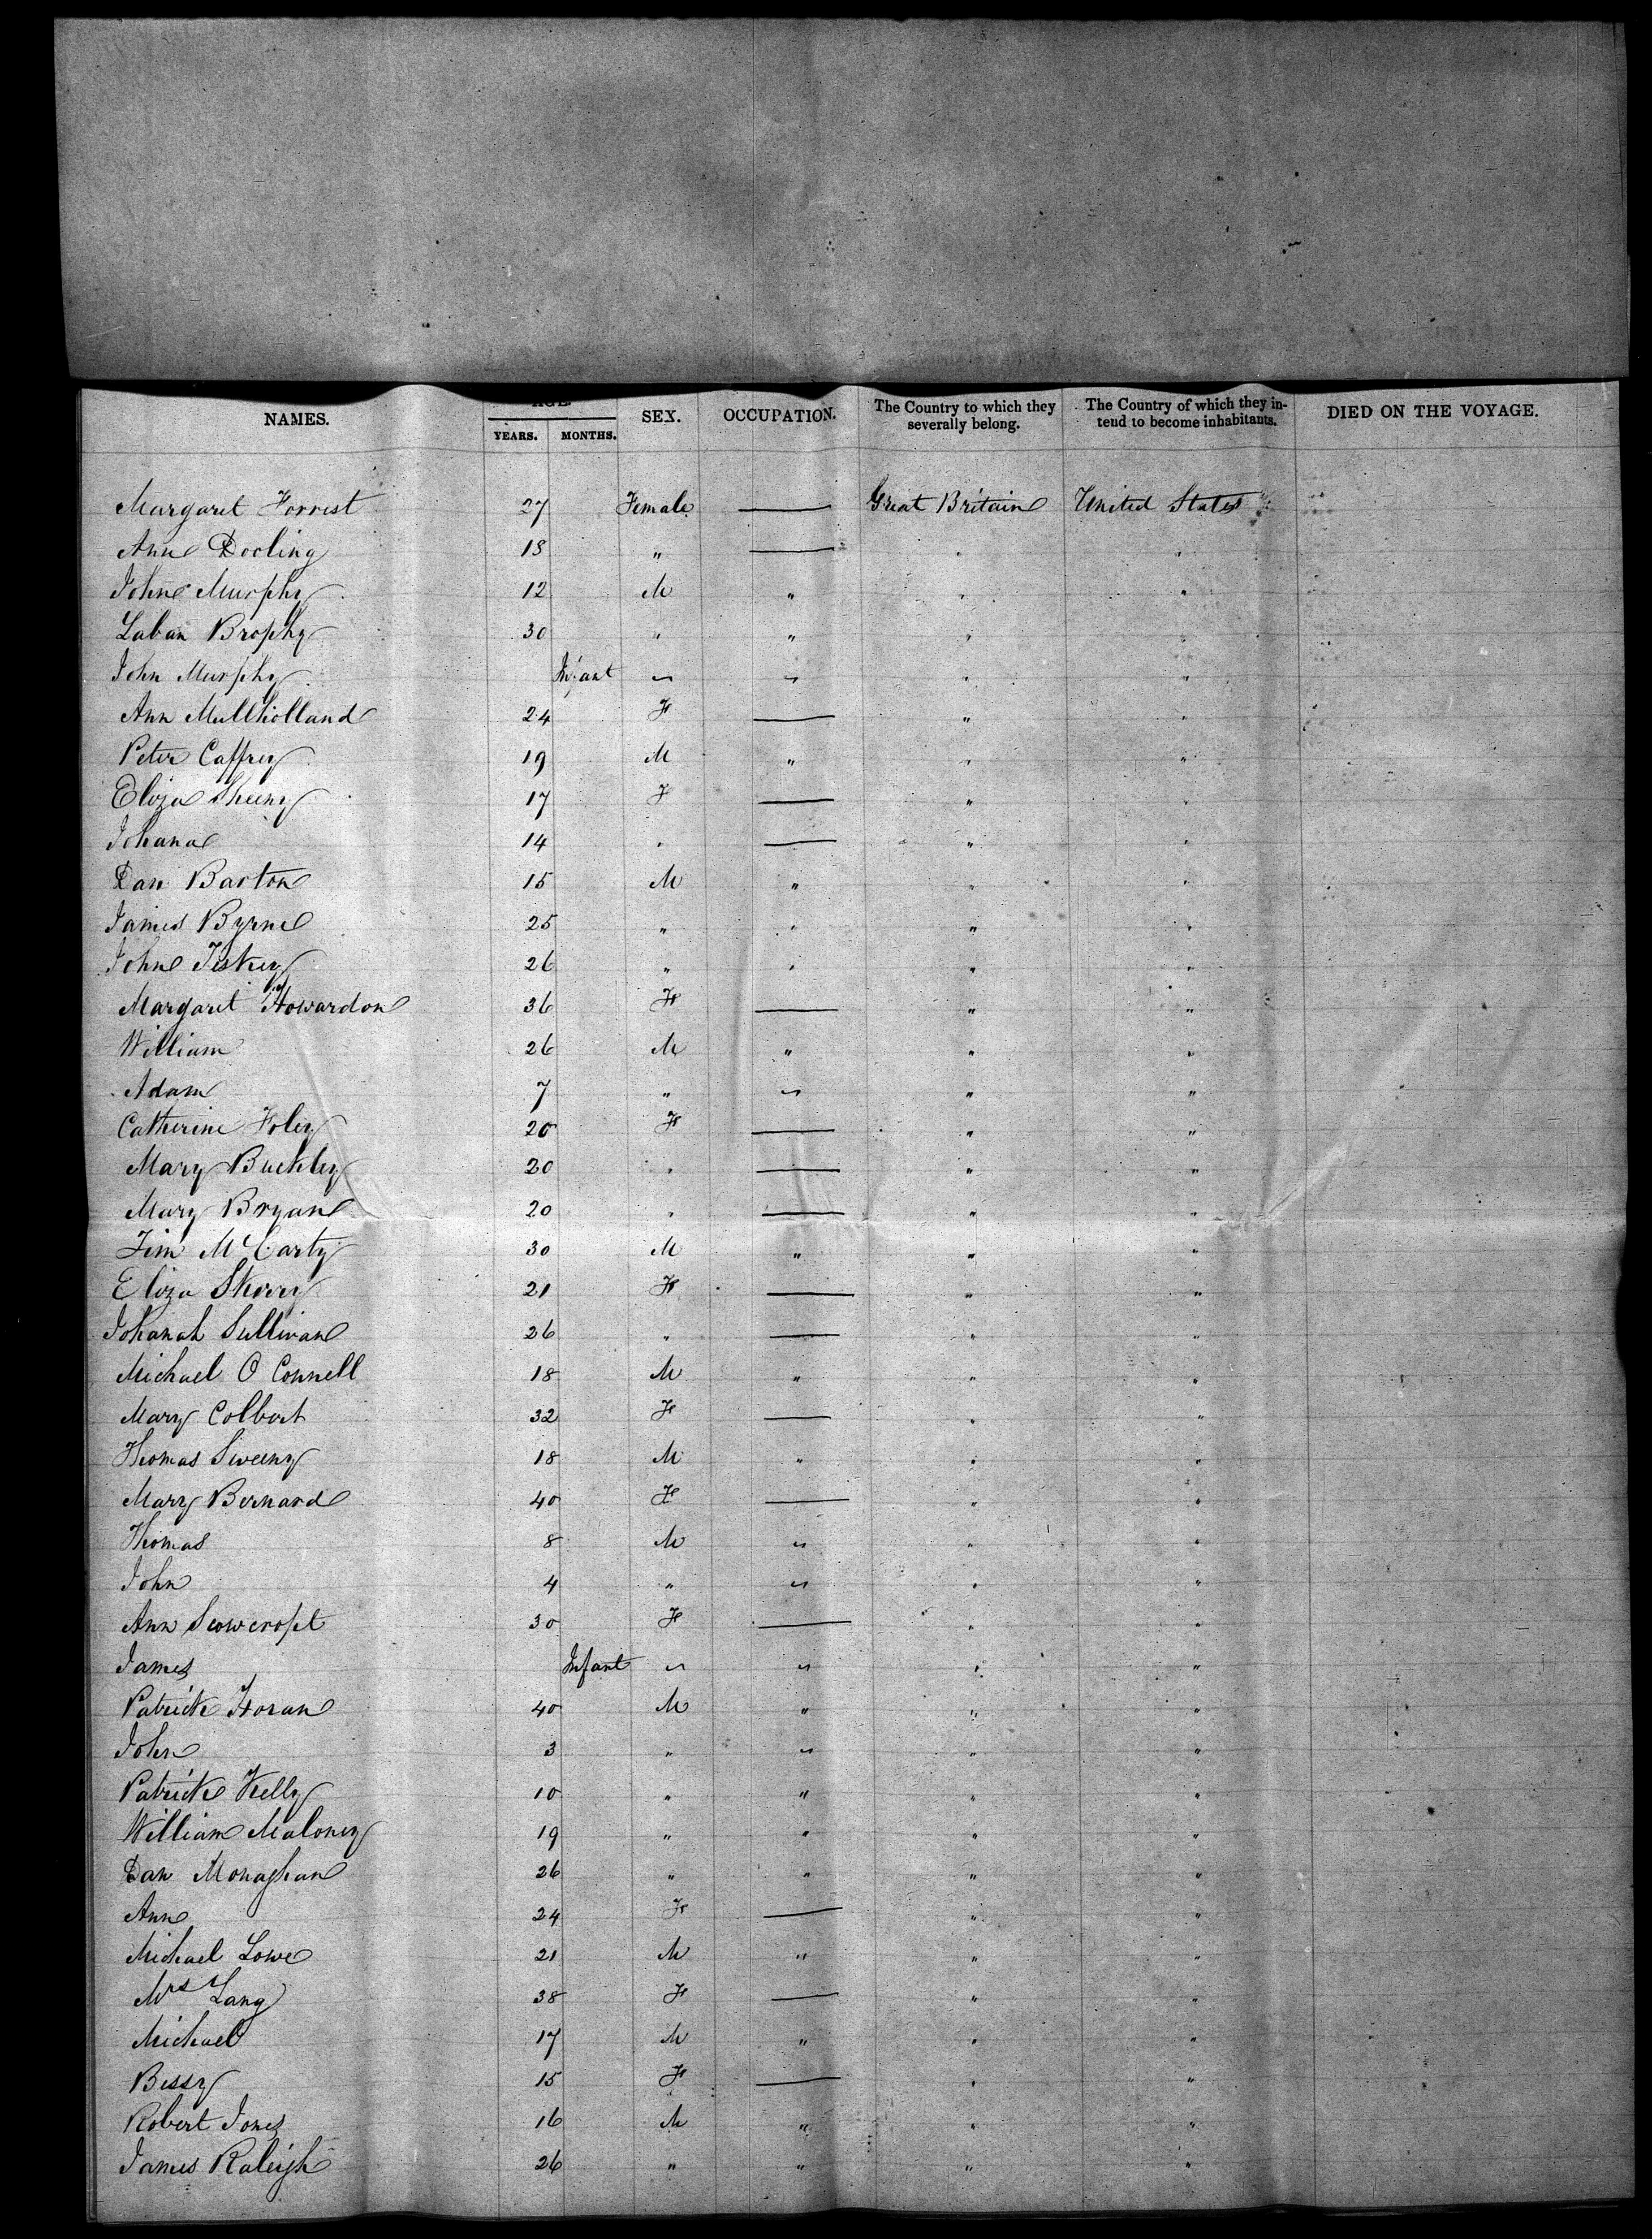 NAMES. AGE. SEX. OCCUPATION. The Country to which they severally belong. The Country of which they intend to become inhabitants. DIED ON THE VOYAGE.
YEARS. MONTHS.
Margaret Forrest 27 Female —— Great Britain United States
Ann Dooling 18 " —— " "
John Murphy 12 M " " "
Laban Brophy 30 " " " "
John Murphy Infant " " " "
Ann Mullholland 24 F —— " "
Peter Caffrey 19 M " " "
Eliza Sheeny 17 F —— " "
Johana 14 " —— " "
Dan Barton 15 M " " "
James Byrne 25 " " " "
John Tiskey 26 " " " "
Margaret Howardon 36 F —— " "
William 26 M " " "
Adam 7 " " " "
Catherine Foley 20 F —— " "
Mary Buckley 20 " —— " "
Mary Bryan 20 " —— " "
Tim McCarty 30 M " " "
Eliza 21 F —— " "
Johanah Sullivan 26 " —— " "
Michael O Connell 18 M " " "
Mary Colbert 32 F —— " "
Thomas Sweeny 18 M " " "
Mary Bernard 40 F —— " "
Thomas 8 M " " "
John 4 " " " "
Ann Scowcroft 30 F —— " "
James Infant " " " "
Patrick Horan 40 M " " "
John 3 " " " "
Patrick Kelly 10 " " " "
William Maloney 19 " " " "
Dan Monaghan 26 " " " "
Ann 24 F —— " "
Michael Lowe 21 M " " "
Mrs Lang 38 F —— " "
Michael 17 M " " "
Bessy 15 F —— " "
Robert Jones 16 M " " "
James Raleigh 26 " " " "